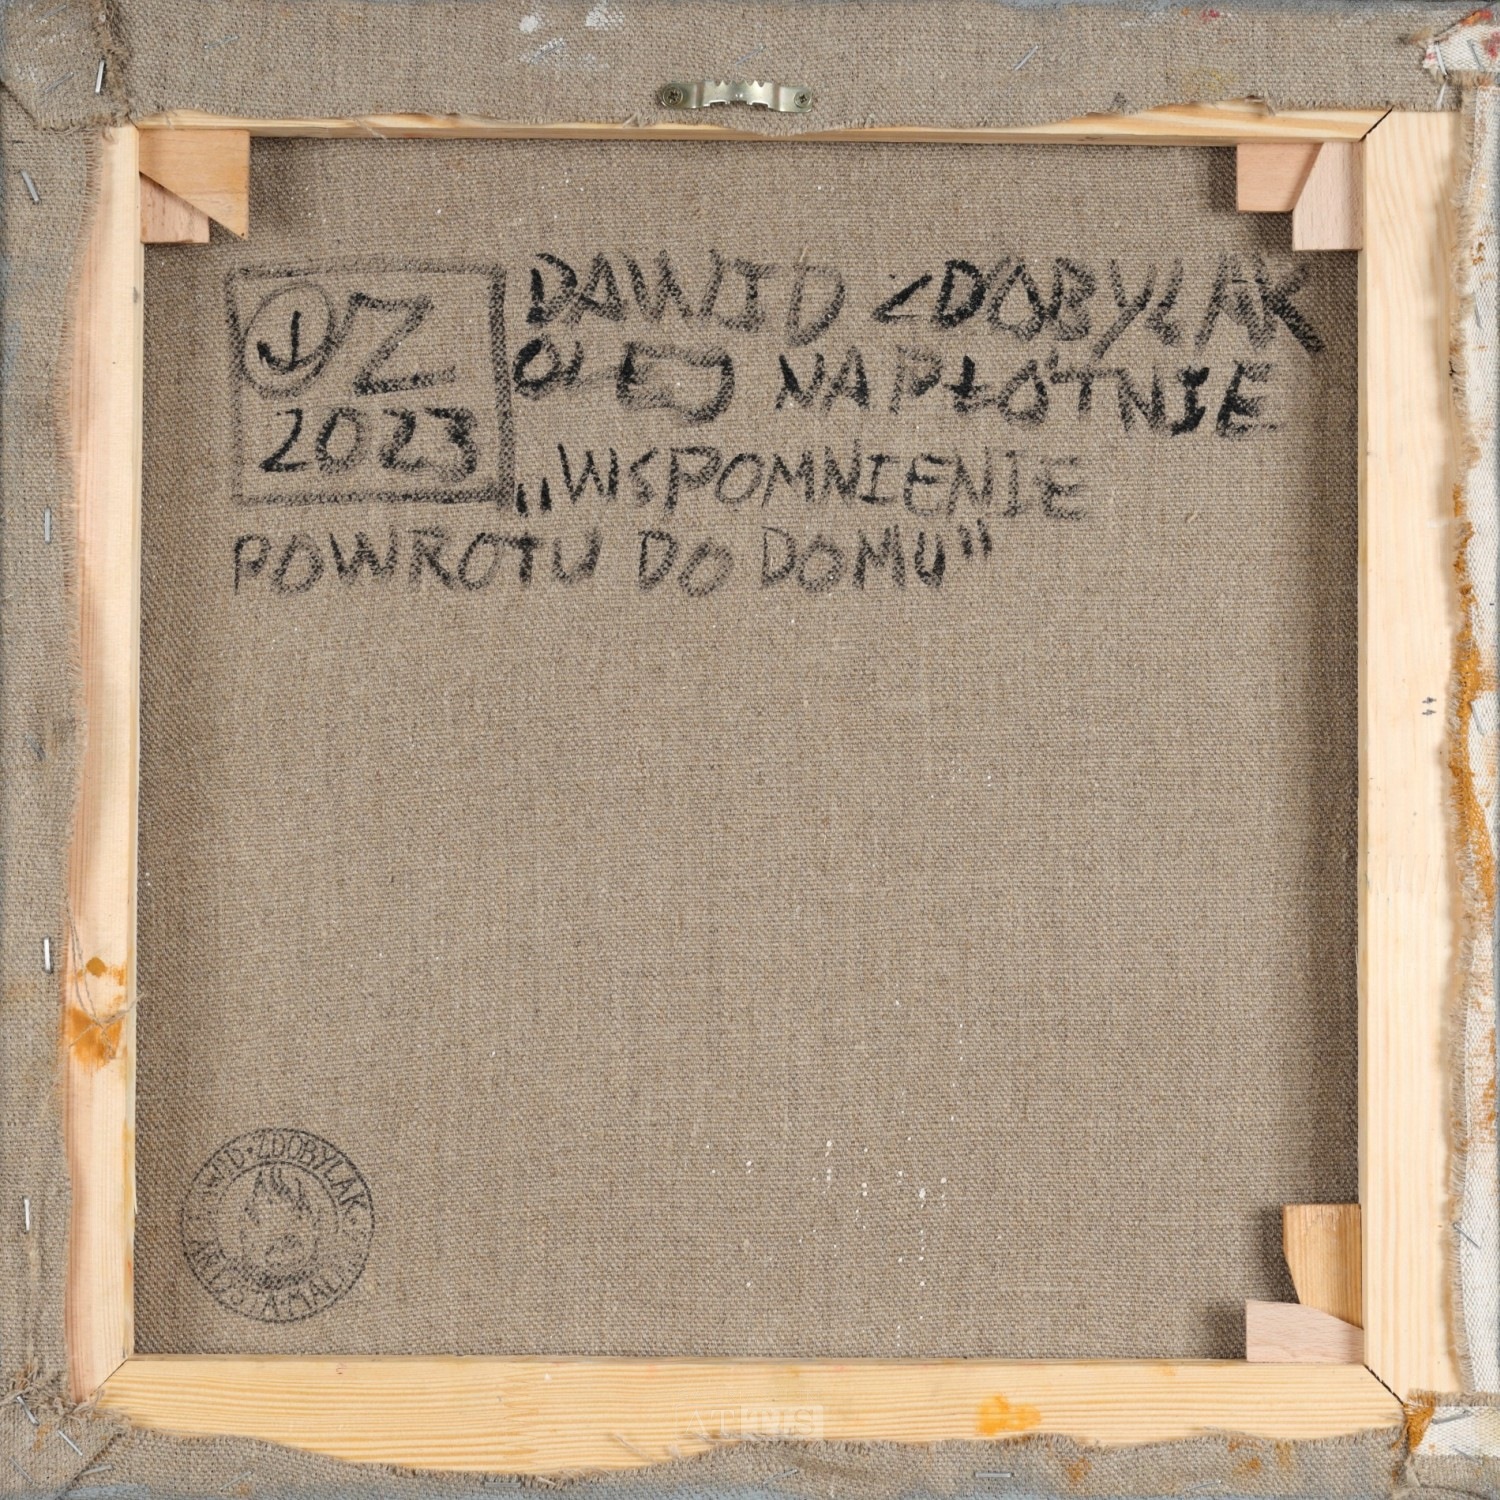 Z
2023
DAWID ZDOBYLAK
OLEJ NA PŁÓTNIE
„WSPOMNIENIE
POWROTU DO DOMU"
DAWID·ZDOBYLAK·